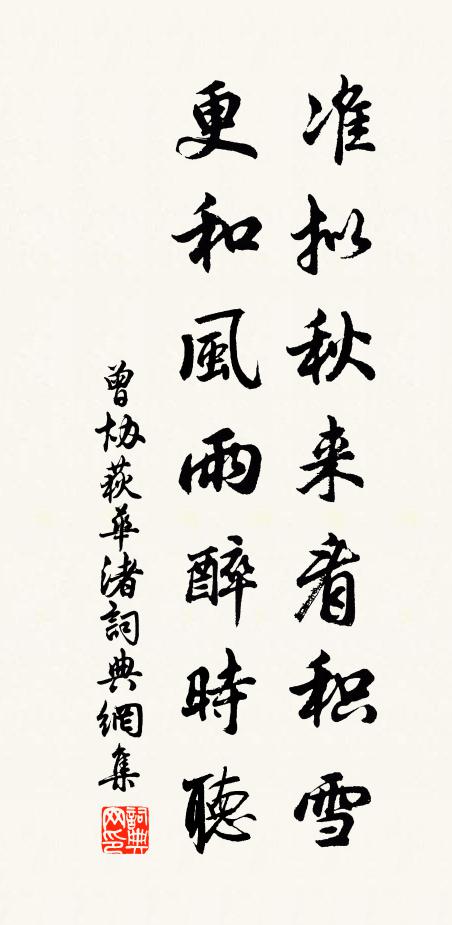 准拟秋来看积雪
更和風雨醉時聽
曾协荻華渚詞典網集
詞典网印